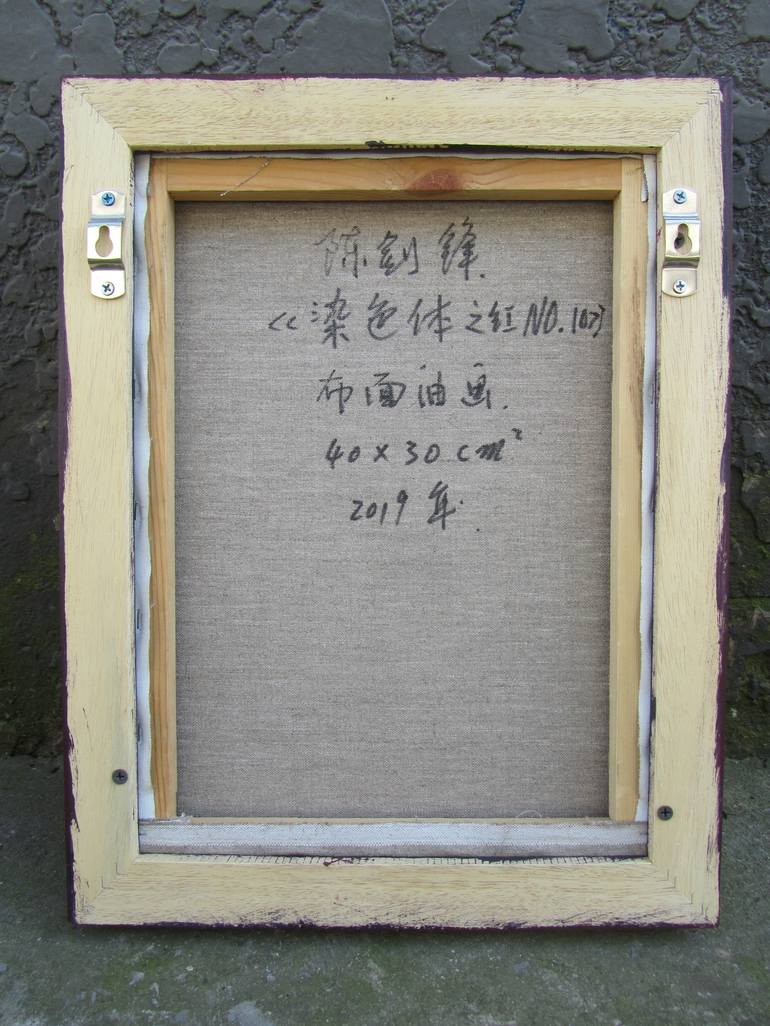 陈剑锋.
<<染色体之红NO.107>
布面油画.
40×30cm²
2019年.